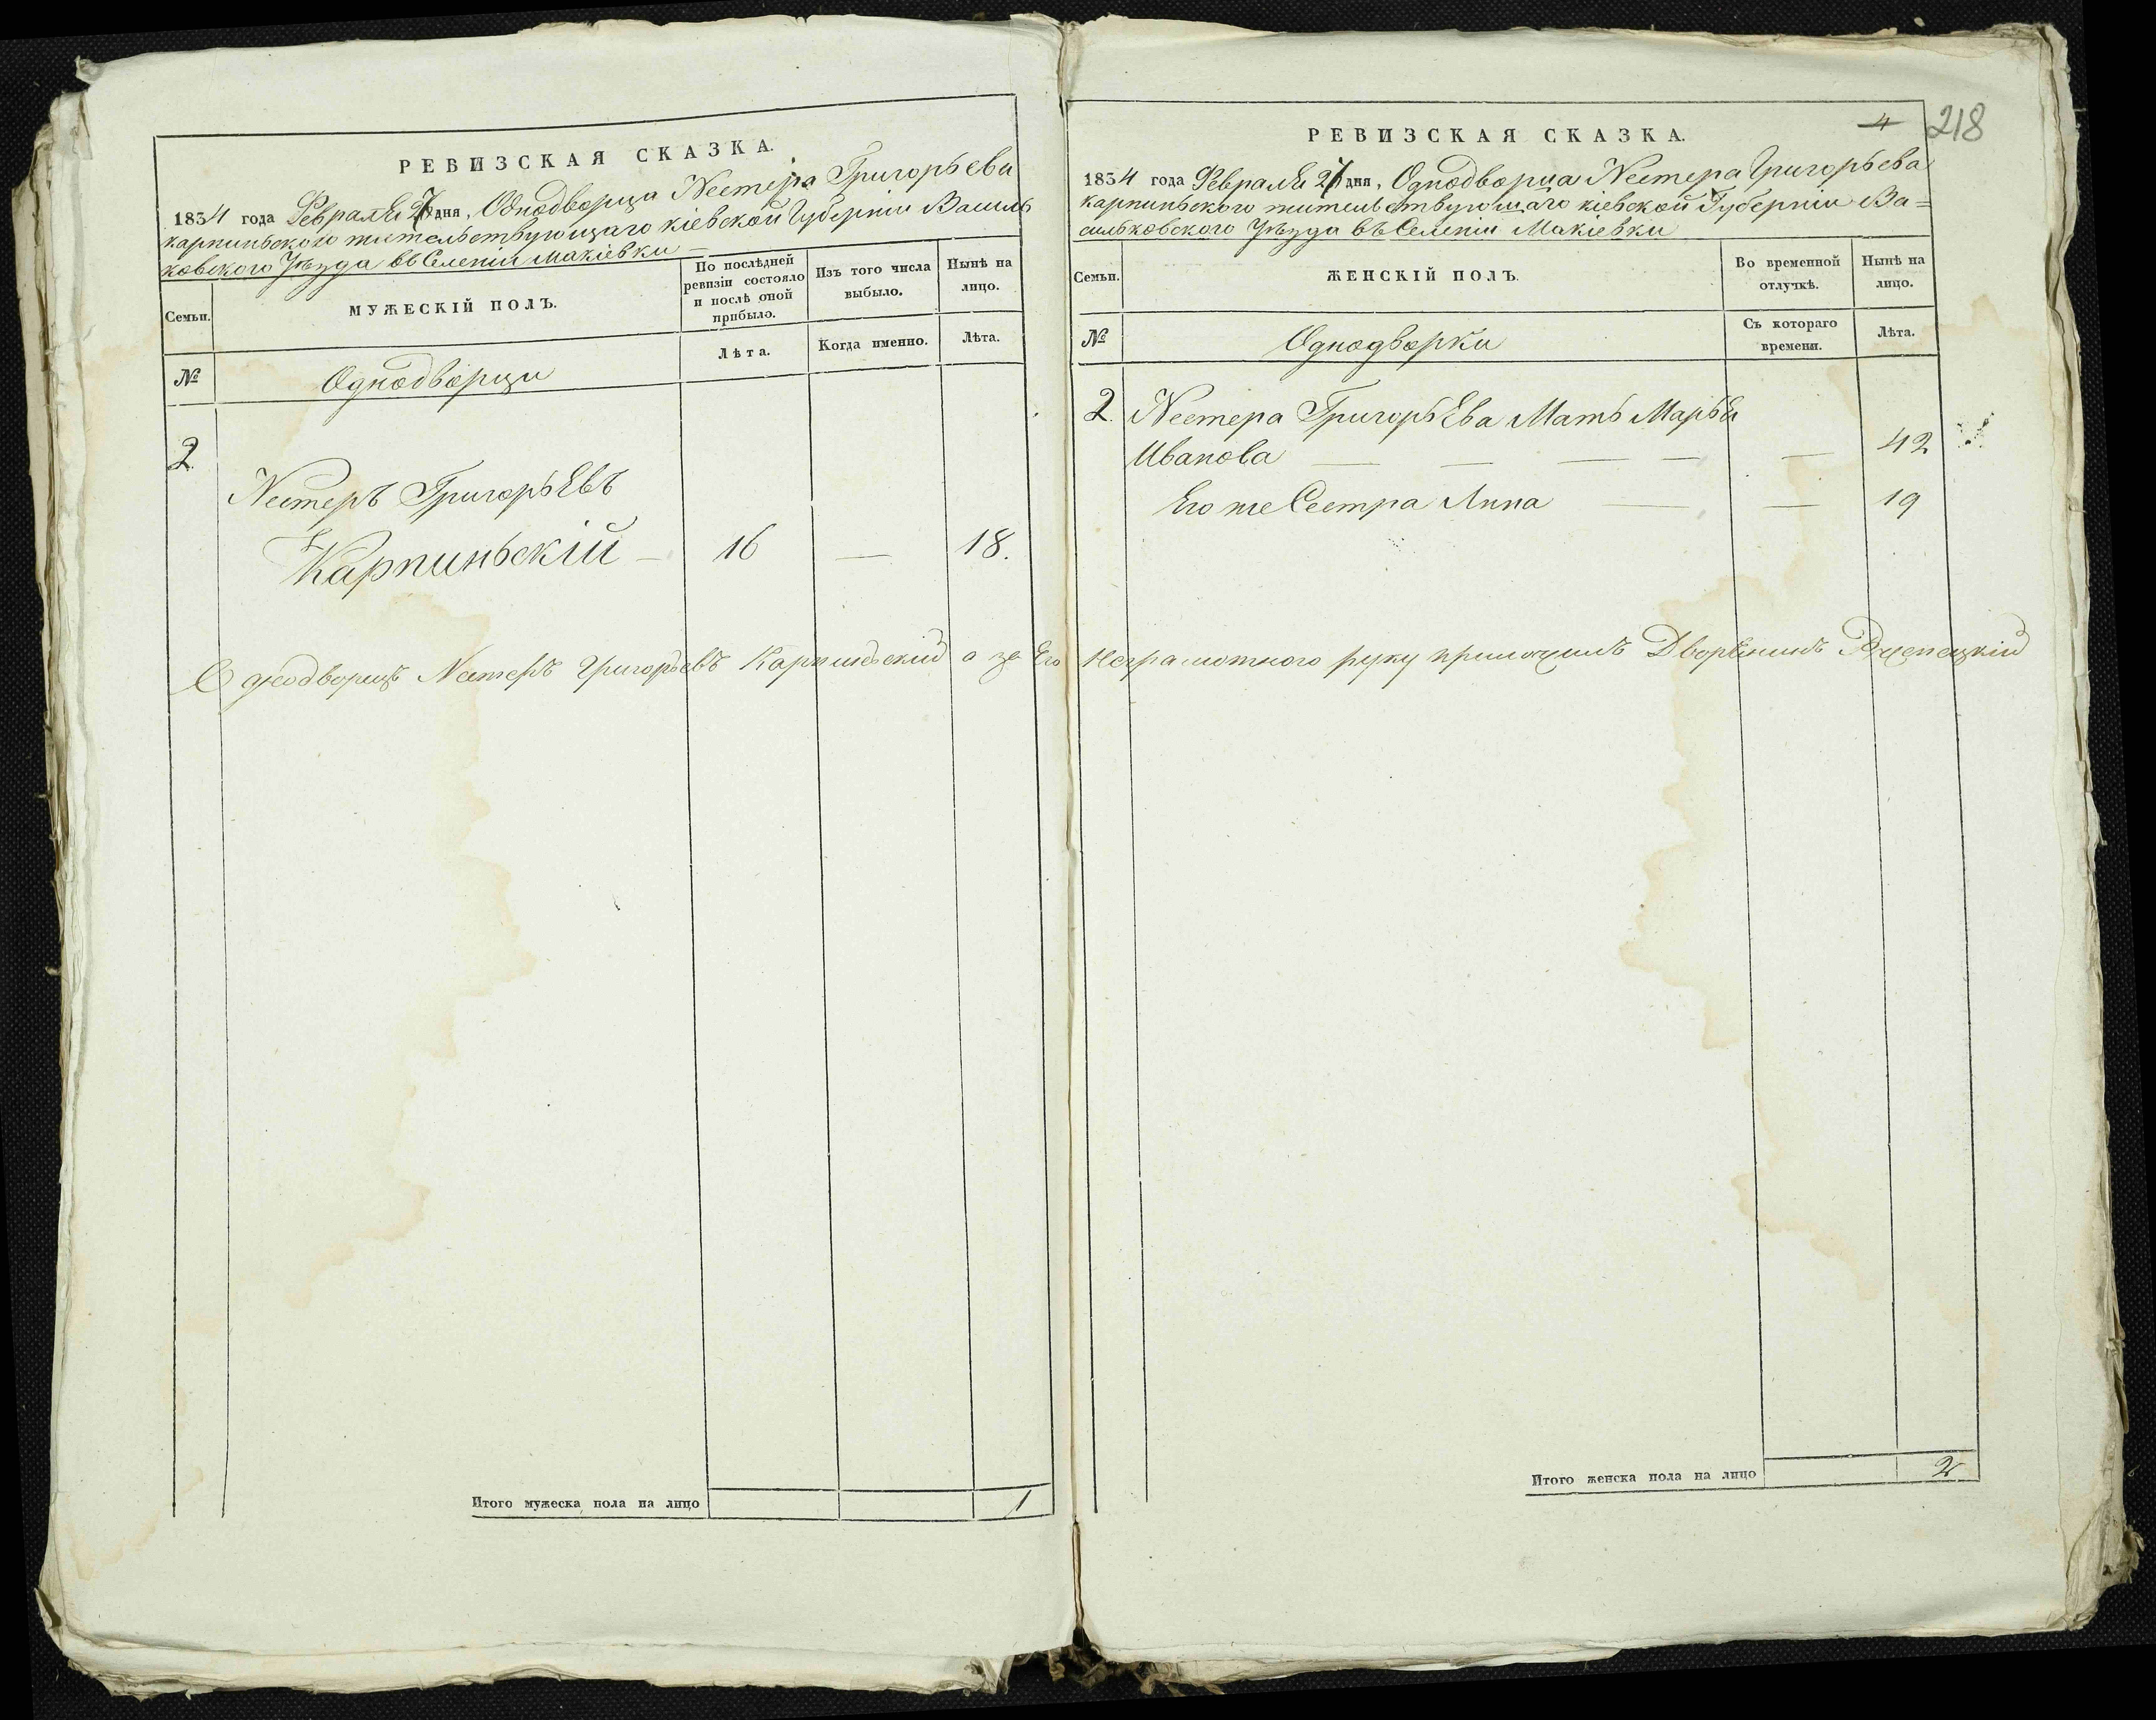 РЕВИЗСКАЯ СКАЗКА.
1834 года Февраля 27 дня, Однодворца Нестера Григорьева
карпиньского жительствующаго кіевской Губерніи Василь
ковского Уѣзда въ Селеніи Макіевки
Семьи.
МУЖЕСКІЙ ПОЛЪ.
По послѣдней ревизіи состояло и послѣ оной прибыло.
Изъ того числа выбыло.
Нынѣ на лицо.
№
Однодворци
Лѣта.
Когда именно.
Лѣта.
2.
Нестеръ Григорьевъ
Карпиньскій — 16 — 18.
Однодворецъ Нестеръ Григорьевъ Карпиньскій а за Его неграмотного руку приложилъ Дворенинъ
Итого мужеска пола на лицо 1
4 218
РЕВИЗСКАЯ СКАЗКА.
1834 года Февраля 27 дня, Однодворца Нестера Григорьева
карпиньского жительствующаго кіевской Губерніи Ва=
сильковского Уѣзда въ Селеніи Макіевки
Семьи.
ЖЕНСКІЙ ПОЛЪ.
Во временной отлучкѣ.
Нынѣ на лицо.
№
Однодворки
Съ котораго времени.
Лѣта.
2. Нестера Григорьева Мать Марья
Иванова — — — — — 42
Его же Сестра Анна — — 19
Итого женска пола на лицо 2